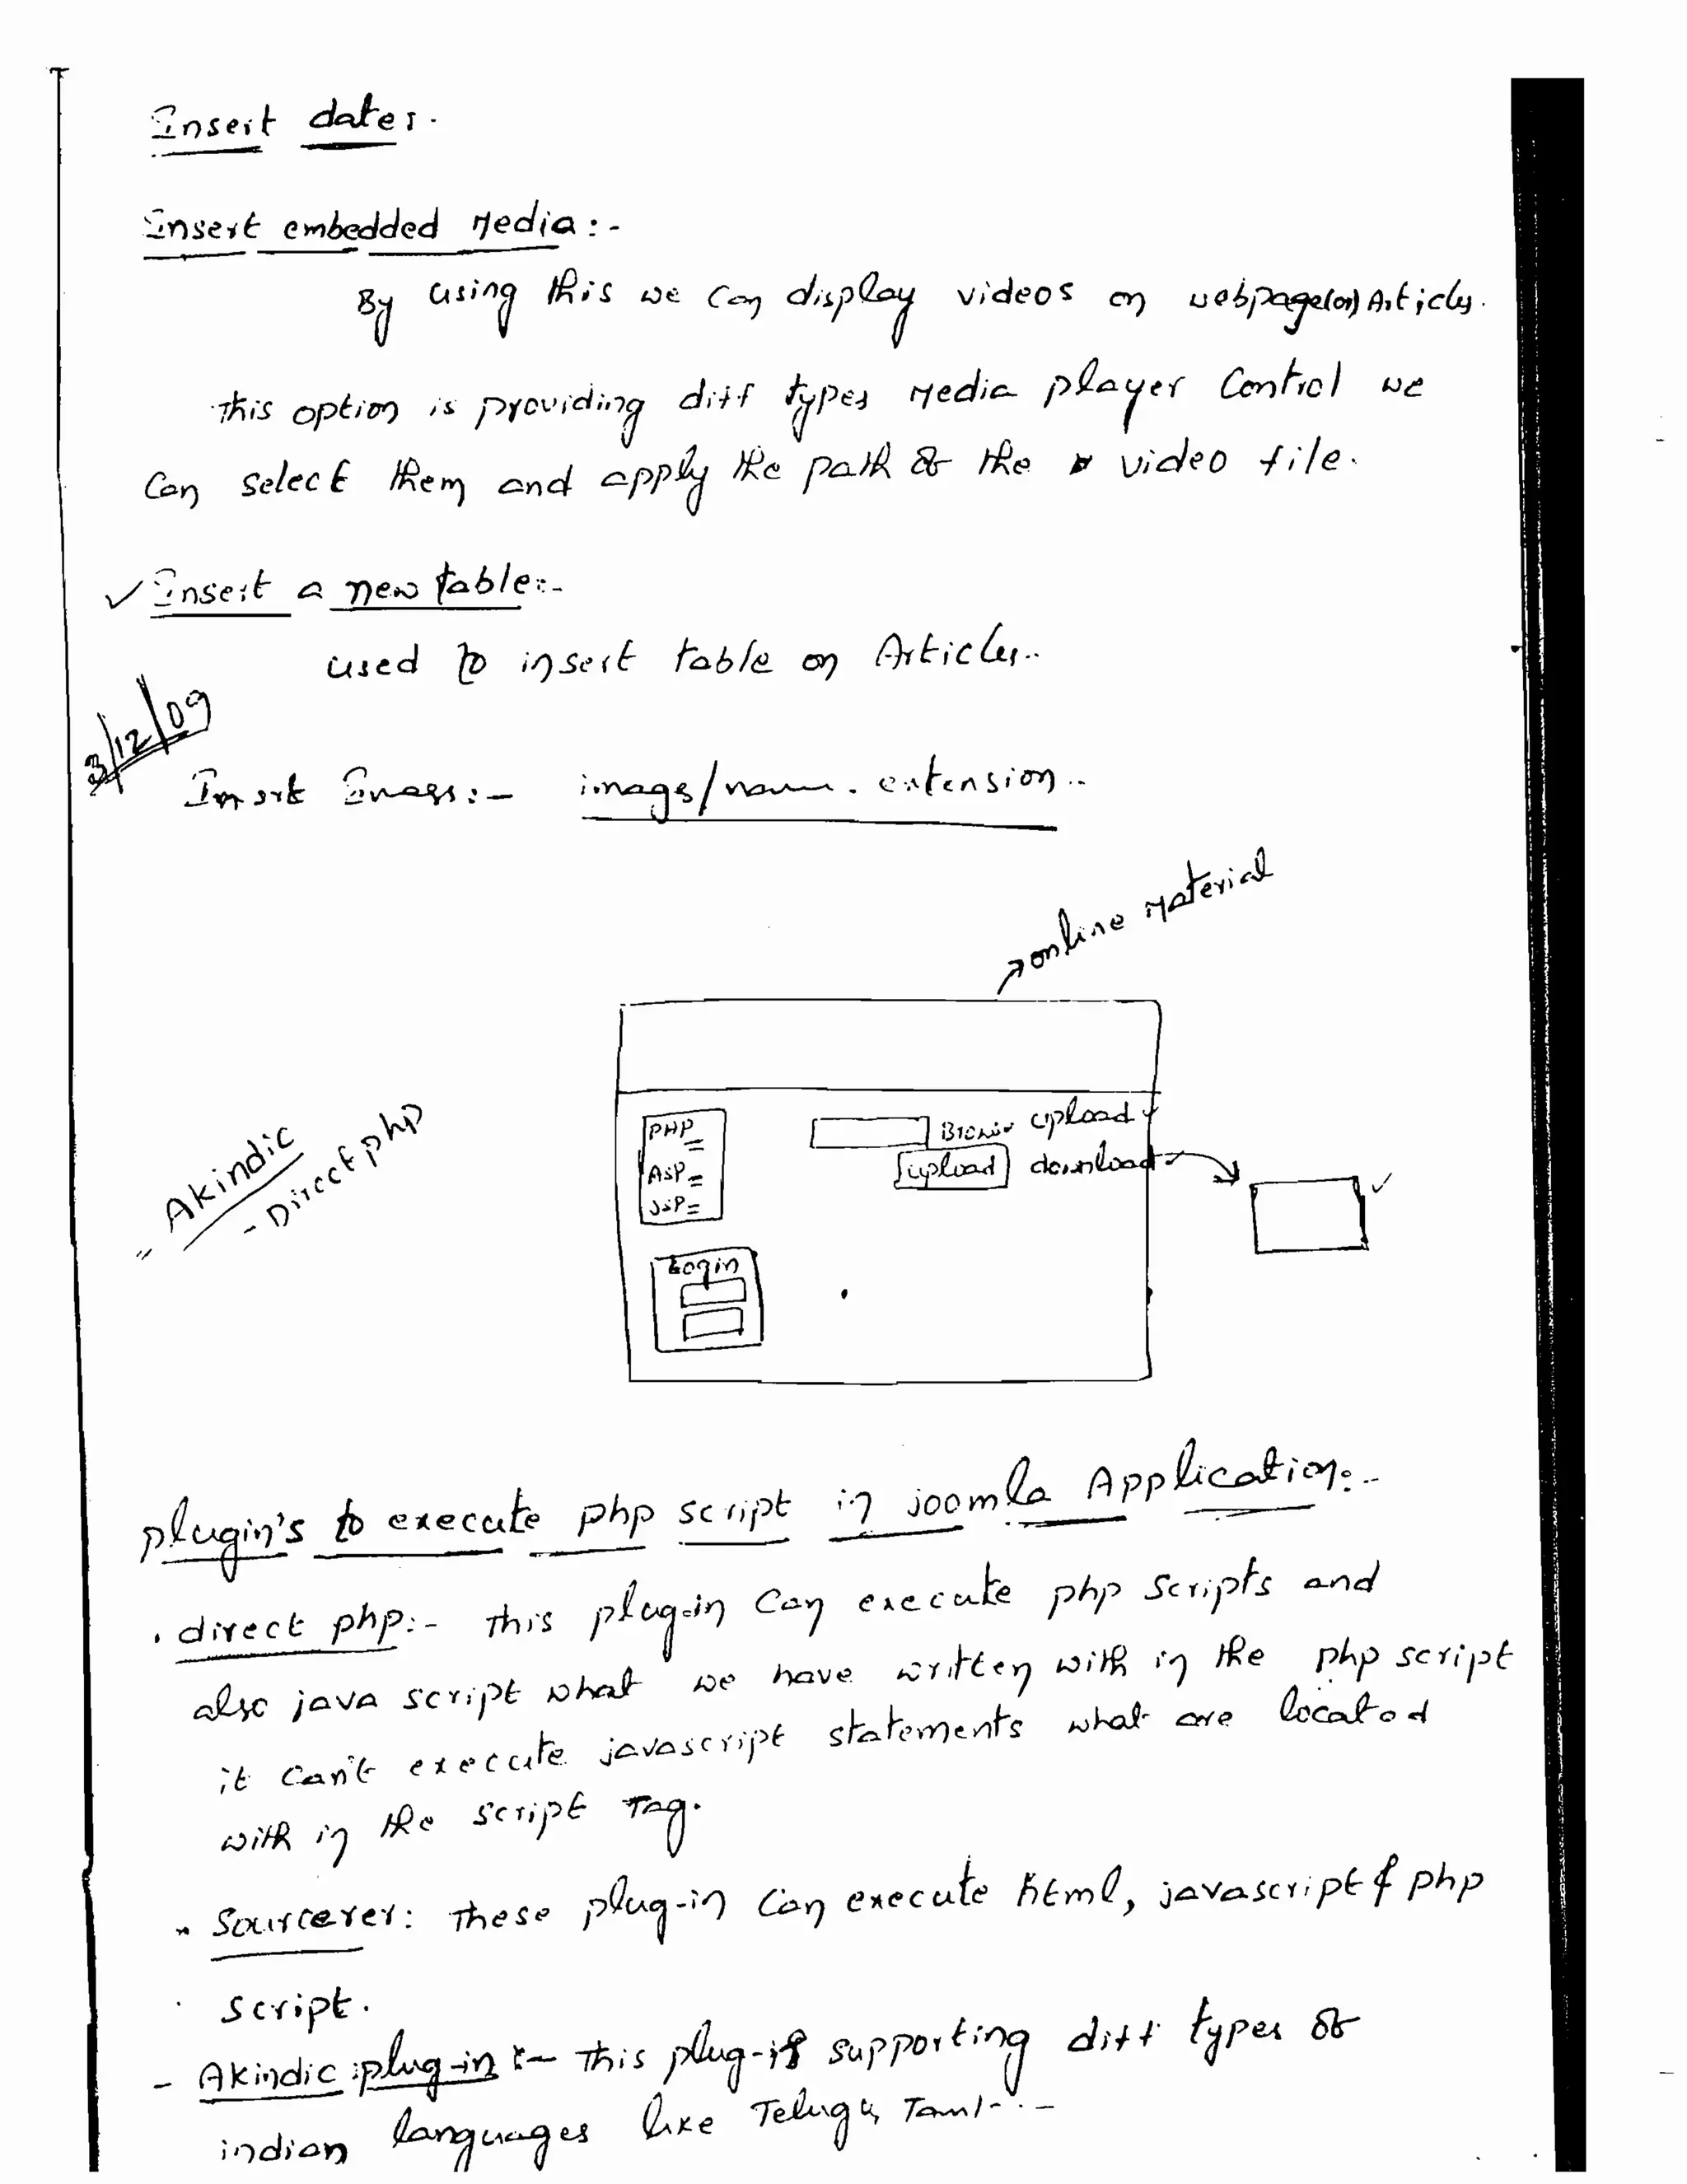 Insert dates.
Insert embedded Media:-
By using this we can display videos on webpage(or) Articles.
This option is providing diff types Media player Control we
Can select them and apply the path of the video file.
✓ Insert a new table:-
used to insert table on Articles..
3/12/09
Insert Images:- images/name.extension..
online Material
PHP
ASP
JSP
Browse upload ✓
upload download ✓
✓
Login
Akindic
- Direct php
plugin's to execute php script in joomla Application:-
. direct php:- This plug-in Can execute php scripts and
also java script what we have written with in the php script
it can't execute javascript statements what are located
with in the script Tag.
* Sourcerer: These plug-in Can execute html, javascript & php
script.
- Akindic :plug-in :- This plug-in supporting diff types of
indian languages like Telugu, Taml...-